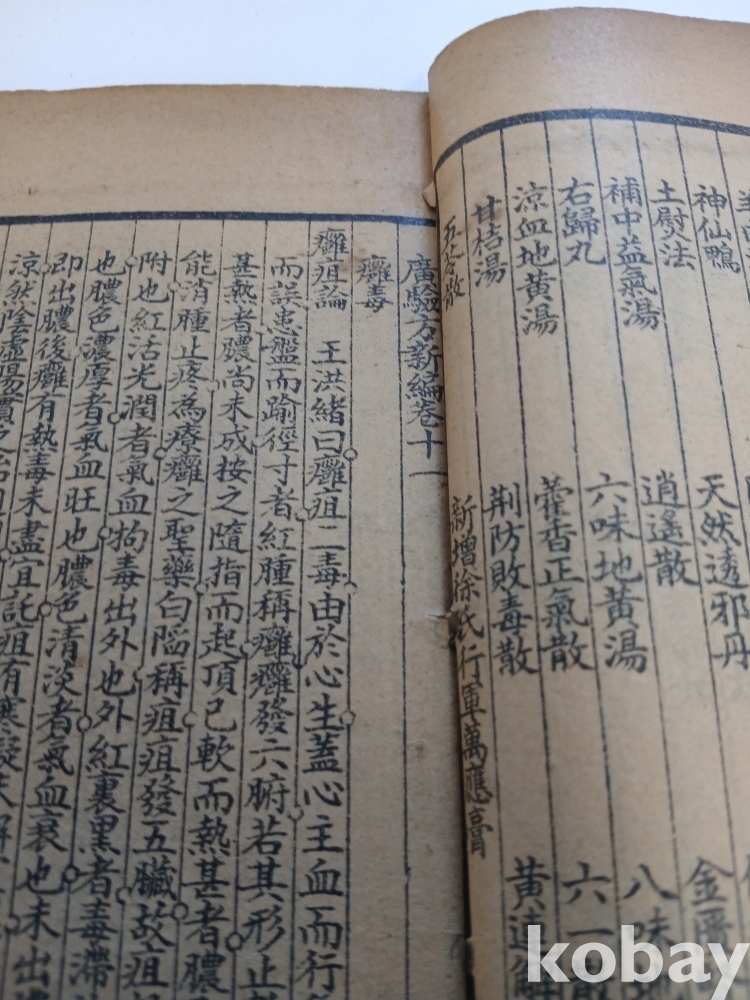 神仙鴨 天然透邪丹 金匱
土熨法 逍遙散 八味
補中益氣湯 六味地黃湯 六一
右歸丸 藿香正氣散 黃連
涼血地黃湯 荊防敗毒散
甘桔湯 新增徐氏行軍萬應膏
五苓散
廣驗方新編卷十一
癰毒
癰疽論 王洪緒曰癰疽二毒由於心生蓋心主血而行
而誤患盤而踰徑寸者紅腫稱癰癰發六腑若其形止
甚熱者膿尚未成按之隨指而起頂已軟而熱甚者膿
能消腫止疼為療癰之聖藥白陷稱疽疽發五臟故疽
附也紅活光潤者氣血拘毒出外也外紅裏黑者毒滯
也膿色濃厚者氣血旺也膿色清淡者氣血衰也未出膿
即出膿後癰有熱毒未盡宜託疽有寒凝未解
涼然陰虛陽實
kobay